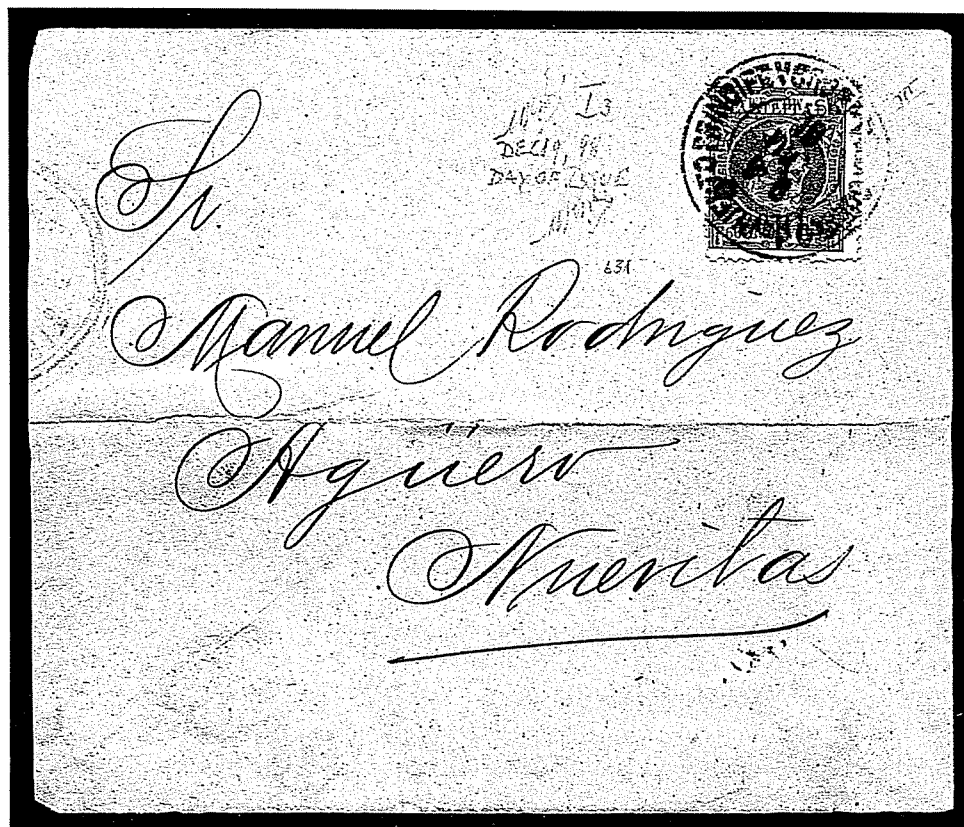 I3
DEC 19, 98
DAY OF ISSUE
Sr.
Manuel Rodriguez
Agüero
Nuevitas